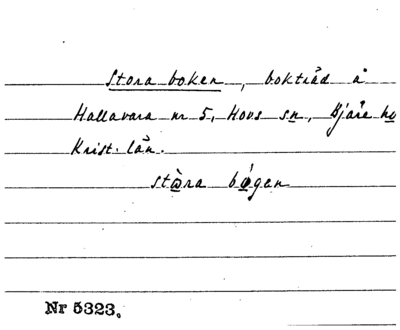 Stora boken, bokträd å
Hallavara nr 5, Hovs sn, Bjäre h
Krist. län.
stàra bǿgen
Nr 5323.